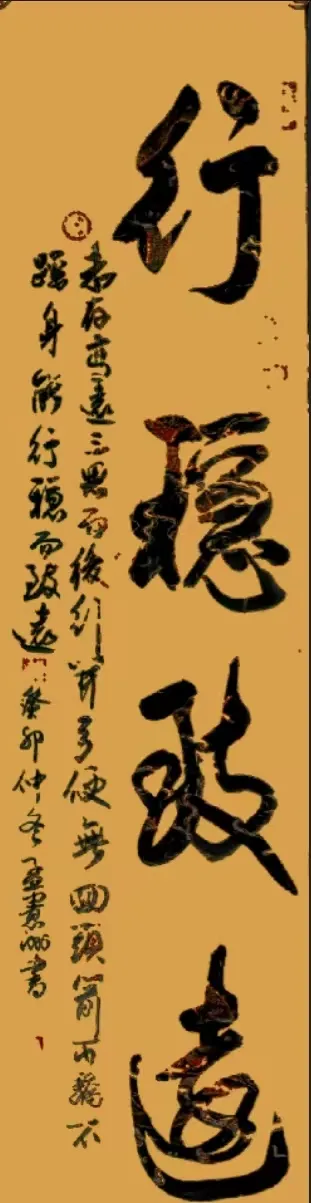 行穩致遠
志存高遠三思而後行開弓便無回頭箭不驕不
躁身能行穩而致遠癸卯仲冬孟書